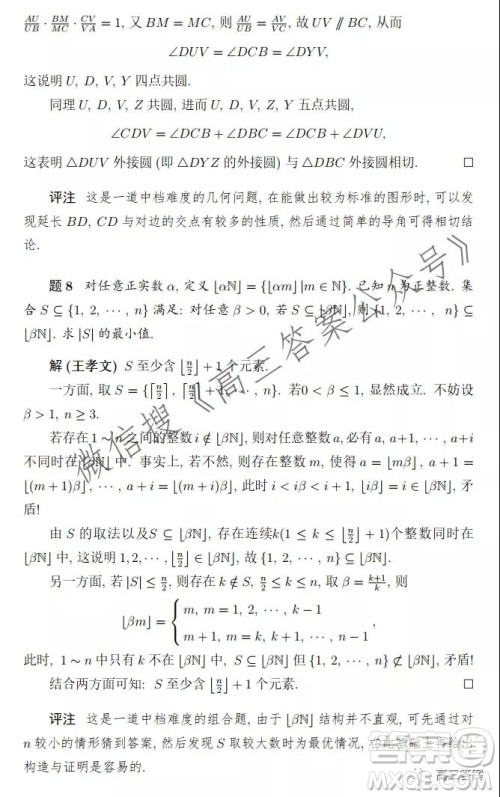 $\frac{AU}{UB} \cdot \frac{BM}{MC} \cdot \frac{CV}{VA} = 1$, 又 $BM = MC$, 则 $\frac{AU}{UB} = \frac{AV}{VC}$, 故 $UV \parallel BC$, 从而
∠DUV = ∠DCB = ∠DYV,
这说明 U, D, V, Y 四点共圆.
同理 U, D, V, Z 共圆, 进而 U, D, V, Z, Y 五点共圆,
∠CDV = ∠DCB + ∠DBC = ∠DCB + ∠DVU,
这表明 △DUV 外接圆 (即 △DYZ 的外接圆) 与 △DBC 外接圆相切. □
评注 这是一道中档难度的几何问题, 在能做出较为标准的图形时, 可以发
现延长 BD, CD 与对边的交点有较多的性质, 然后通过简单的导角可得相切结
论.
题 8 对任意正实数 α, 定义 ⌊αℕ⌋ = {⌊αm⌋ | m ∈ ℕ}. 已知 n 为正整数. 集
合 S ⊆ {1, 2, ⋯, n} 满足: 对任意 β > 0, 若 S ⊆ ⌊βℕ⌋, 则 {1, 2, ⋯, n} ⊆
⌊βℕ⌋. 求 |S| 的最小值.
解 (王孝文) S 至少含 $\lfloor \frac{n}{2} \rfloor + 1$ 个元素.
一方面, 取 $S = \{\lceil \frac{n}{2} \rceil, \lceil \frac{n}{2} \rceil + 1, ⋯, n\}$. 若 0 < β ≤ 1, 显然成立. 不妨设
β > 1, n ≥ 3.
若存在 1 ~ n 之间的整数 i ∉ ⌊βℕ⌋, 则对任意整数 a, 必有 a, a+1, ⋯, a+i
不同时在 ⌊βℕ⌋ 中. 事实上, 若不然, 则存在整数 m, 使得 a = ⌊mβ⌋, a + 1 =
⌊(m + 1)β⌋, ⋯, a + i = ⌊(m + i)β⌋, 此时 i < iβ < i + 1, ⌊iβ⌋ = i ∈ ⌊βℕ⌋, 矛
盾!
由 S 的取法以及S ⊆ ⌊βℕ⌋, 存在连续$k(1 ≤ k ≤ \lfloor \frac{n}{2} \rfloor + 1)$个整数同时在
⌊βℕ⌋ 中, 这说明 $1, 2, ⋯, \lfloor \frac{n}{2} \rfloor ∈ ⌊βℕ⌋$, 故 {1, 2, ⋯, n} ⊆ ⌊βℕ⌋.
另一方面, 若 $|S| ≤ \frac{n}{2}$, 则存在 k ∉ S, $\frac{n}{2} ≤ k ≤ n$, 取 $β = \frac{k+1}{k}$, 则
$⌊βm⌋ = \begin{cases} m, m = 1, 2, ⋯, k - 1 \\ m + 1, m = k, k + 1, ⋯, n \end{cases}$,
此时, 1 ~ n 中只有 k 不在 ⌊βℕ⌋ 中, S ⊆ ⌊βℕ⌋ 但 {1, 2, ⋯, n} ⊄ ⌊βℕ⌋, 矛盾!
结合两方面可知: S 至少含 $\lfloor \frac{n}{2} \rfloor + 1$ 个元素. □
评注 这是一道中档难度的组合题, 由于 ⌊βℕ⌋ 结构并不直观, 可先通过对
n 较小的情形猜到答案, 然后发现 S 取较大数时为最优情况, 在此基础上再给出
构造与证明是容易的.
微信搜《高三答案公众号》
高三答案